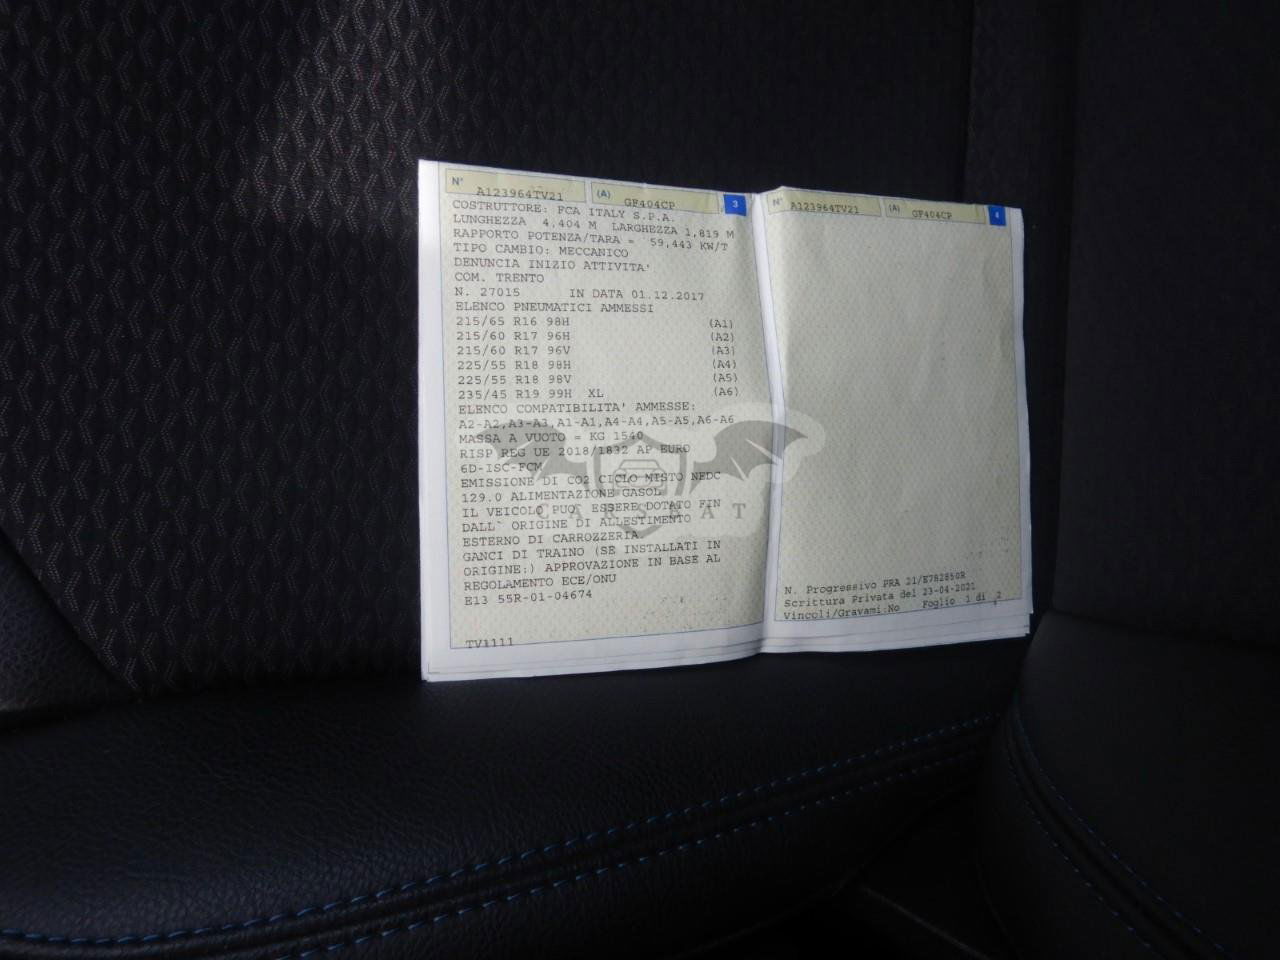 N° A123964TV21 (A) GF404CP 3
COSTRUTTORE: FCA ITALY S.P.A.
LUNGHEZZA 4,404 M LARGHEZZA 1,819 M
RAPPORTO POTENZA/TARA = 59,443 KW/T
TIPO CAMBIO: MECCANICO
DENUNCIA INIZIO ATTIVITA'
COM. TRENTO
N. 27015 IN DATA 01.12.2017
ELENCO PNEUMATICI AMMESSI
215/65 R16 98H (A1)
215/60 R17 96H (A2)
215/60 R17 96V (A3)
225/55 R18 98H (A4)
225/55 R18 98V (A5)
235/45 R19 99H XL (A6)
ELENCO COMPATIBILITA' AMMESSE:
A2-A2,A3-A3,A1-A1,A4-A4,A5-A5,A6-A6
MASSA A VUOTO = KG 1540
RISP REG UE 2018/1832 AP EURO
6D-ISC-FCM
EMISSIONE DI CO2 CICLO MISTO NEDC
129.0 ALIMENTAZIONE GASOL
IL VEICOLO PUO' ESSERE DOTATO FIN
DALL` ORIGINE DI ALLESTIMENTO
ESTERNO DI CARROZZERIA.
GANCI DI TRAINO (SE INSTALLATI IN
ORIGINE:) APPROVAZIONE IN BASE AL
REGOLAMENTO ECE/ONU
E13 55R-01-04674
TV1111
N° A123964TV21 (A) GF404CP 4
N. Progressivo PRA 21/E782850R
Scrittura Privata del 23-04-2021
Vincoli/Gravami:No Foglio 1 di 2
CARSEAT